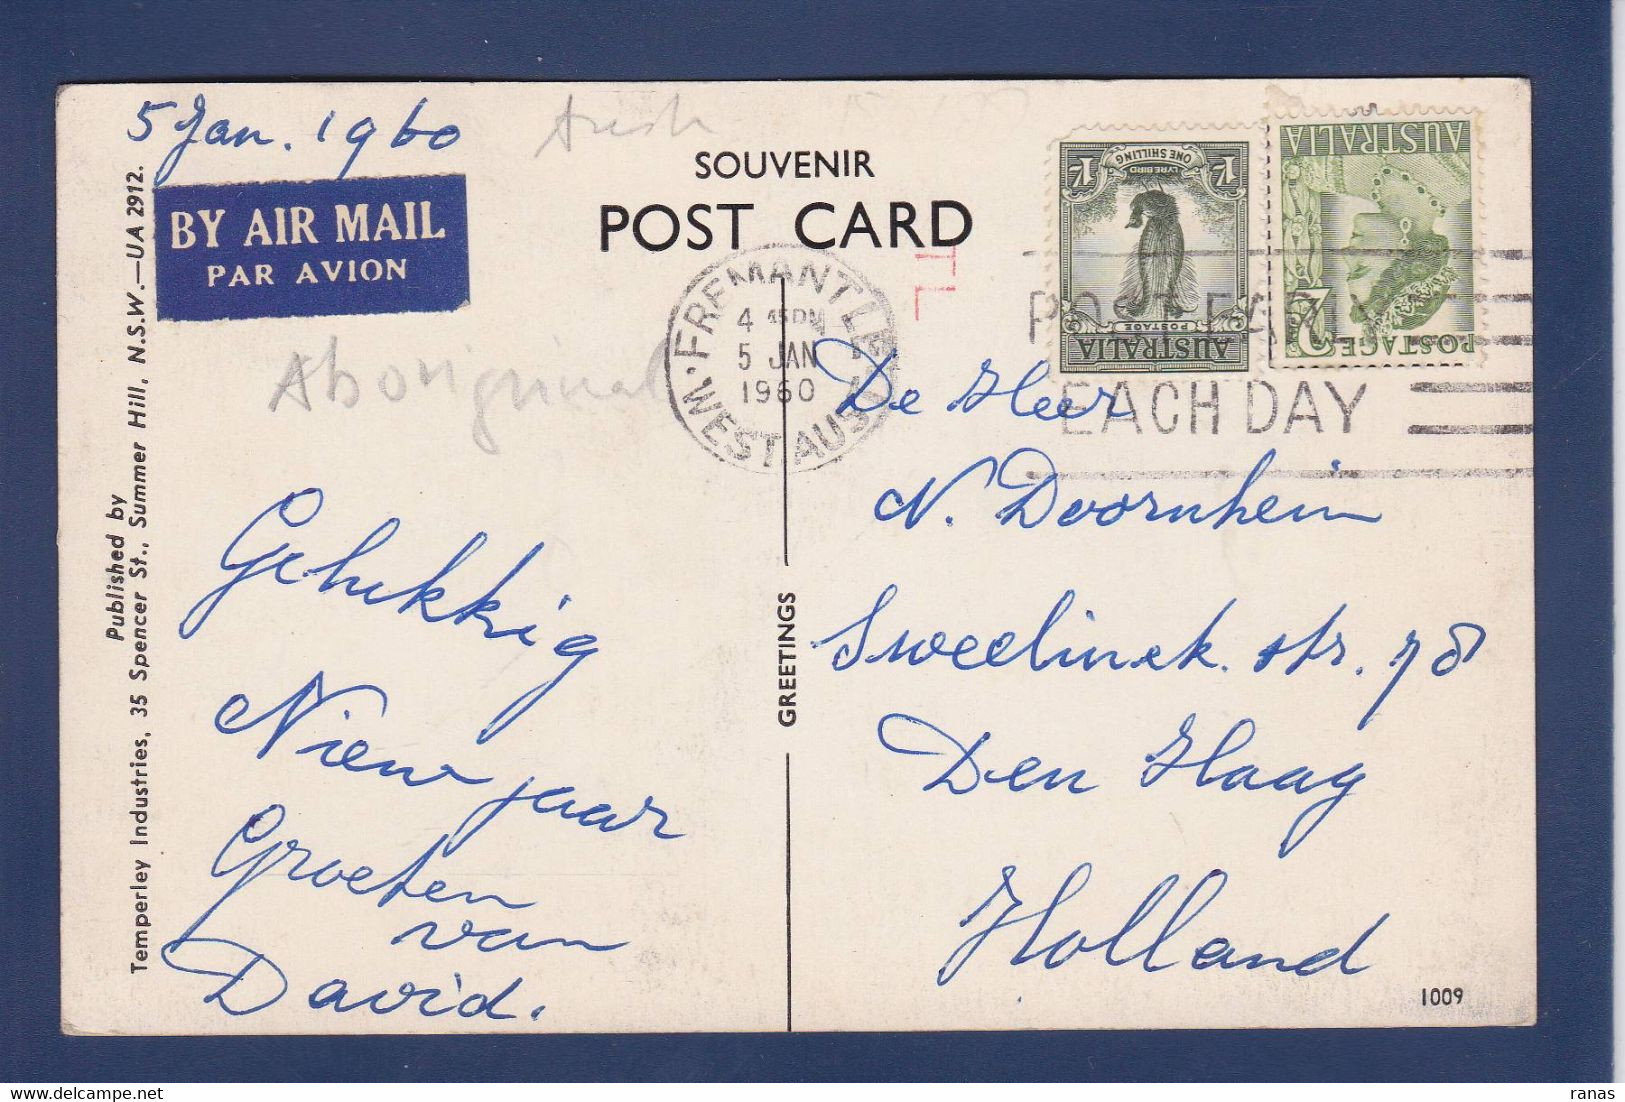 5 Jan. 1960
Aust
SOUVENIR
POST CARD
BY AIR MAIL
PAR AVION
Published by
Temperley Industries, 35 Spencer St., Summer Hill, N.S.W.—UA 2912.
Aboriginal
FREMANTLE
4 PM
5 JAN
1960
WEST AUST
POST EARLY
EACH DAY
1/- LYRE BIRD 1/-
ONE SHILLING
POSTAGE
AUSTRALIA
AUSTRALIA
POSTAGE
De Heer
N. Doornhein
Sweelinck. str. 78
Den Haag
Holland
Gelukkig
Nieuw jaar
Groeten
van
David.
GREETINGS
1009
ranas